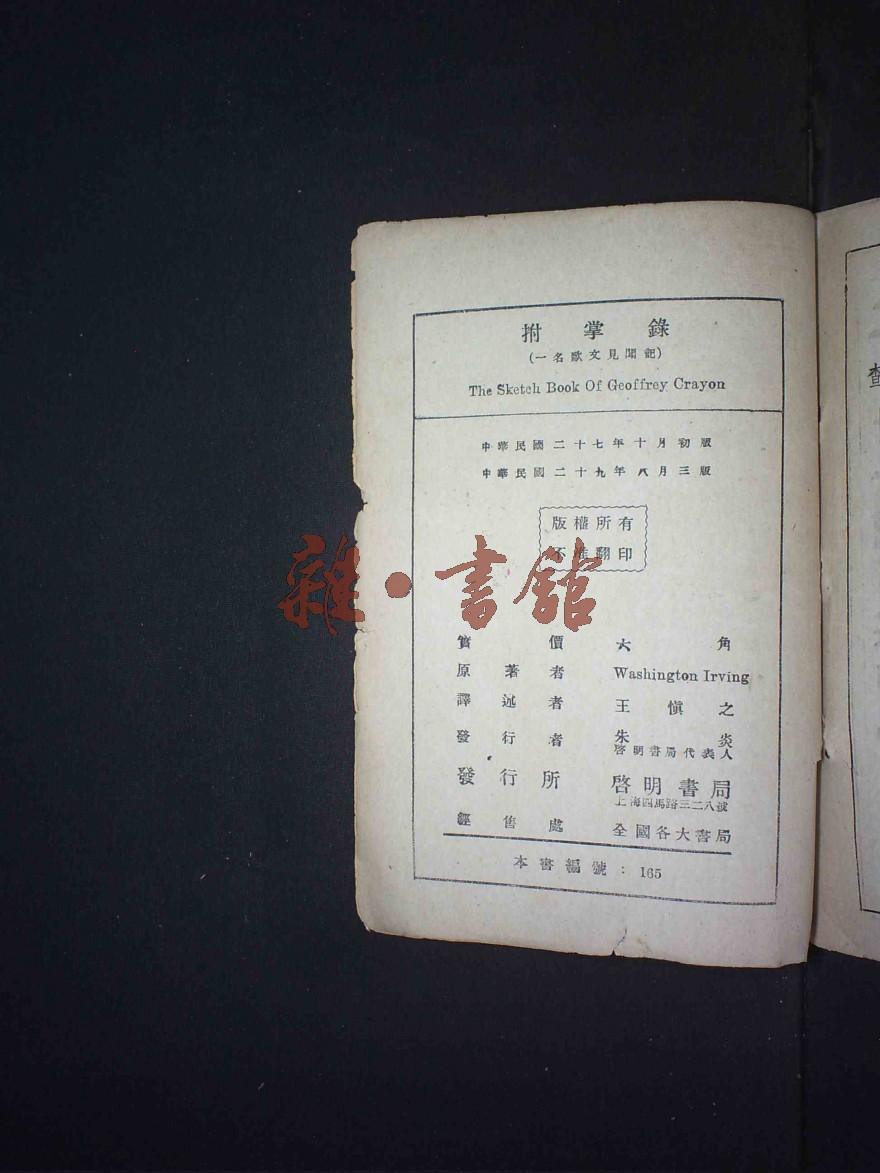 拊掌錄
(一名歐文見聞記)
The Sketch Book Of Geoffrey Crayon
中華民國二十七年十月初版
中華民國二十九年八月三版
版權所有
不准翻印
雜·書館
實價 六角
原著者 Washington Irving
譯述者 王愼之
發行者 朱炎
啓明書局代表人
發行所 啓明書局
上海四馬路三二八號
經售處 全國各大書局
本書編號：165